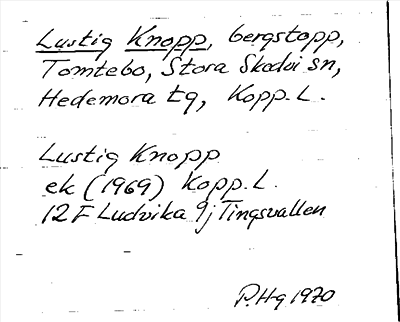 Lustig Knopp, bergstopp,
Tomtebo, Stora Skedvi sn,
Hedemora tg, Kopp. L.
Lustig Knopp
ek (1969) Kopp. L.
12 F Ludvika 9j Tingsvallen
P. Hg 1970